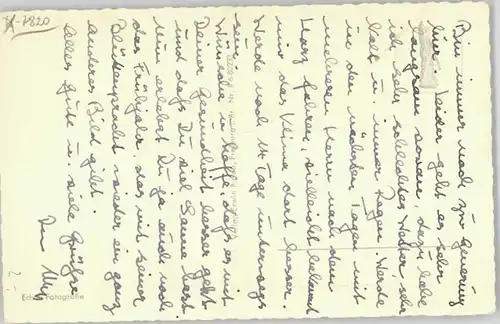 x-7820
Bin immer noch zur Genesung
hier. Leider geht es sehr
langsam voran, dazu habe
ich sehr schlechtes Wetter sehr
kalt u. immer Regen. Werde
in den nächsten Tagen mit
unserem Herrn nach dem
Harz fahren, vielleicht bekommt
mir das Klima dort besser.
Werde noch 14 Tage unterwegs
sein.
Wünsche u. hoffe, dass es mit
Deiner Gesundheit besser geht
und daß Du viel Sonne hast
Nun erlebst Du ja auch noch
das Frühjahr, das mit seiner
Blütenpracht wieder ein ganz
anderes Bild gibt.
Alles gute u. viele Grüße
Echte Fotografie